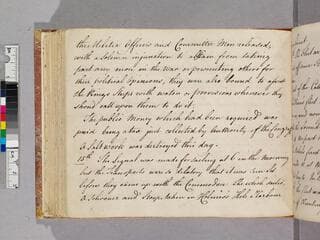 the Militia Officers and Committee Men released,
with a Solemn injunction to abstain from taking
part any more in the war or persecuting others for
their political Opinions, they were also bound to assist
the Kings Ships with water & provisions whenever they
should call upon them to do it.
The public Money which had been required was
paid being a tax just collected by Authority of the Congress
A Salt work was destroyed this day.
15th The Signal was made for sailing at 6 in the Morning
but the Transports were so dilatory that it was Sun set
before they came up with the Commodore. The which suits
A Schooner and Sloop taken in Holmes's Hole Harbour